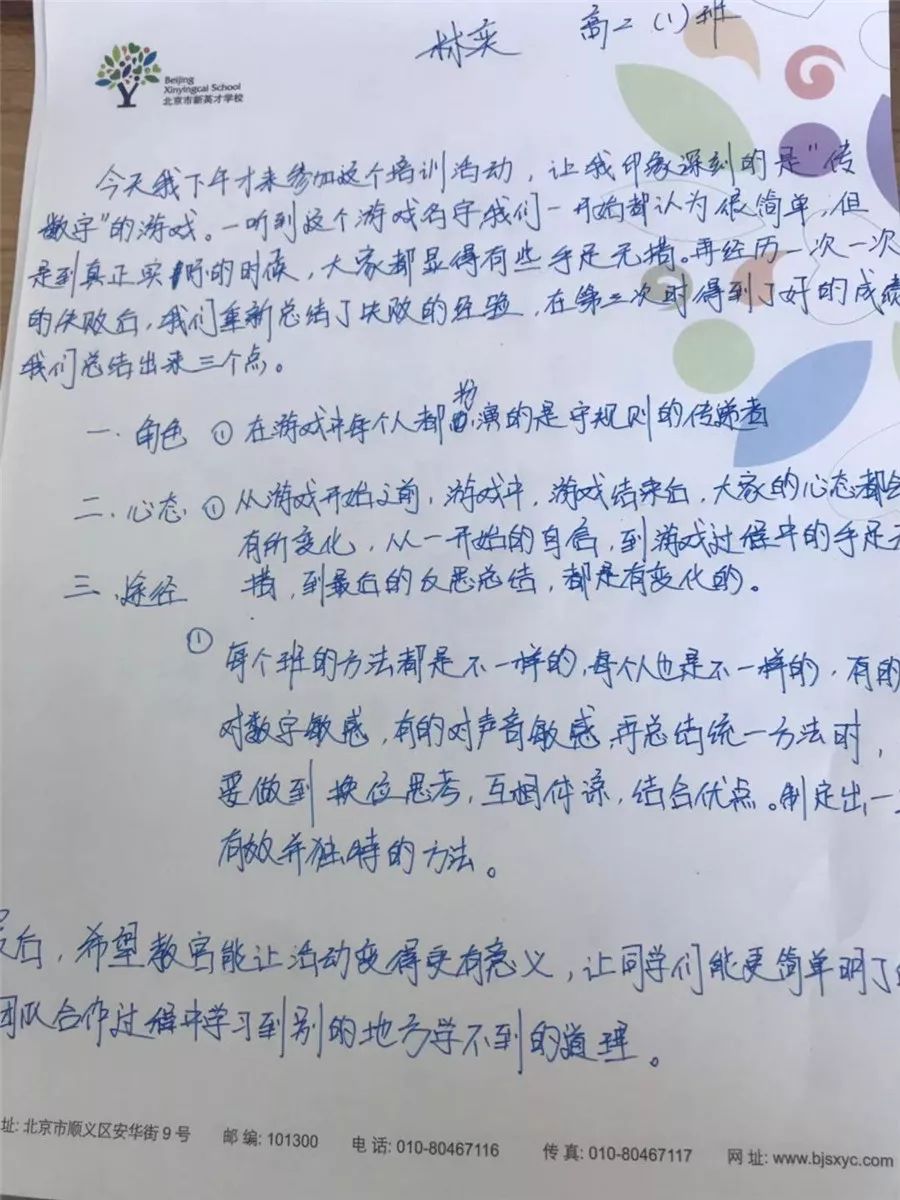 林奕 高二（1）班
Beijing
Xinyingcai School
北京市新英才学校
今天我下午才来参加这个培训活动，让我印象深刻的是“传
数字”的游戏。一听到这个游戏名字我们一开始都认为很简单，但
是到真正实际的时候，大家都显得有些手足无措。再经历一次一次
的失败后，我们重新总结了失败的经验，在第三次时得到了好的成绩
我们总结出来三个点。
一．角色 ① 在游戏中每个人都扮演的是守规则的传递者
二．心态 ① 从游戏开始之前，游戏中，游戏结束后，大家的心态都会
有所变化，从一开始的自信，到游戏过程中的手足无
措，到最后的反思总结，都是有变化的。
三．途径
① 每个班的方法都是不一样的，每个人也是不一样的，有的
对数字敏感，有的对声音敏感，再总结统一方法时，
要做到换位思考，互相体谅，结合优点。制定出一
有效并独特的方法。
后，希望教官能让活动变得更有意义，让同学们能更简单明了
团队合作过程中学习到别的地方学不到的道理。
址: 北京市顺义区安华街9号 邮编: 101300 电话: 010-80467116 传真: 010-80467117 网址: www.bjsxyc.com